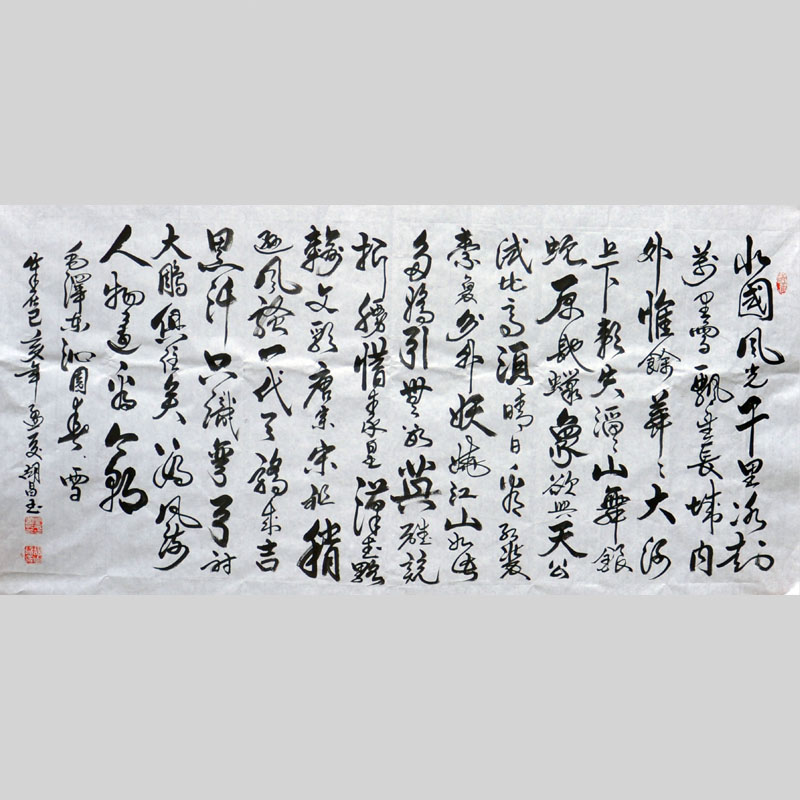 北國風光千里冰封
萬里雪飄望長城內
外惟餘莽〻大河
上下頓失滔〻山舞銀
蛇原馳蠟象欲與天公
試比高須晴日看紅裝
素裹分外妖嬈江山如此
多嬌引無數英雄競
折腰惜秦皇漢武略
輸文彩唐宗宋祖稍
遜風騷一代天驕成吉
思汗只識彎弓射
大鵰俱往矣數風流
人物還看今朝
毛澤東沁園春·雪
在己亥年夏胡昌玉